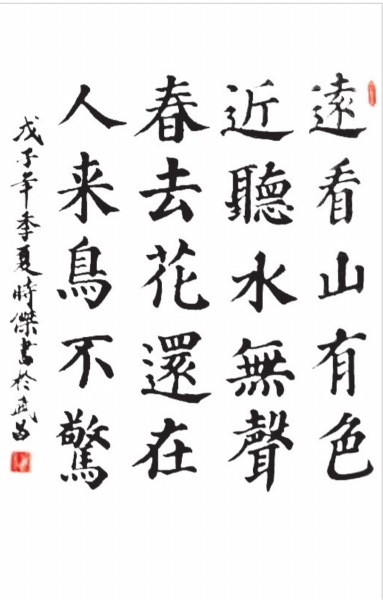 遠看山有色
近聽水無聲
春去花還在
人来鳥不驚
戊子年季夏時傑書於武昌